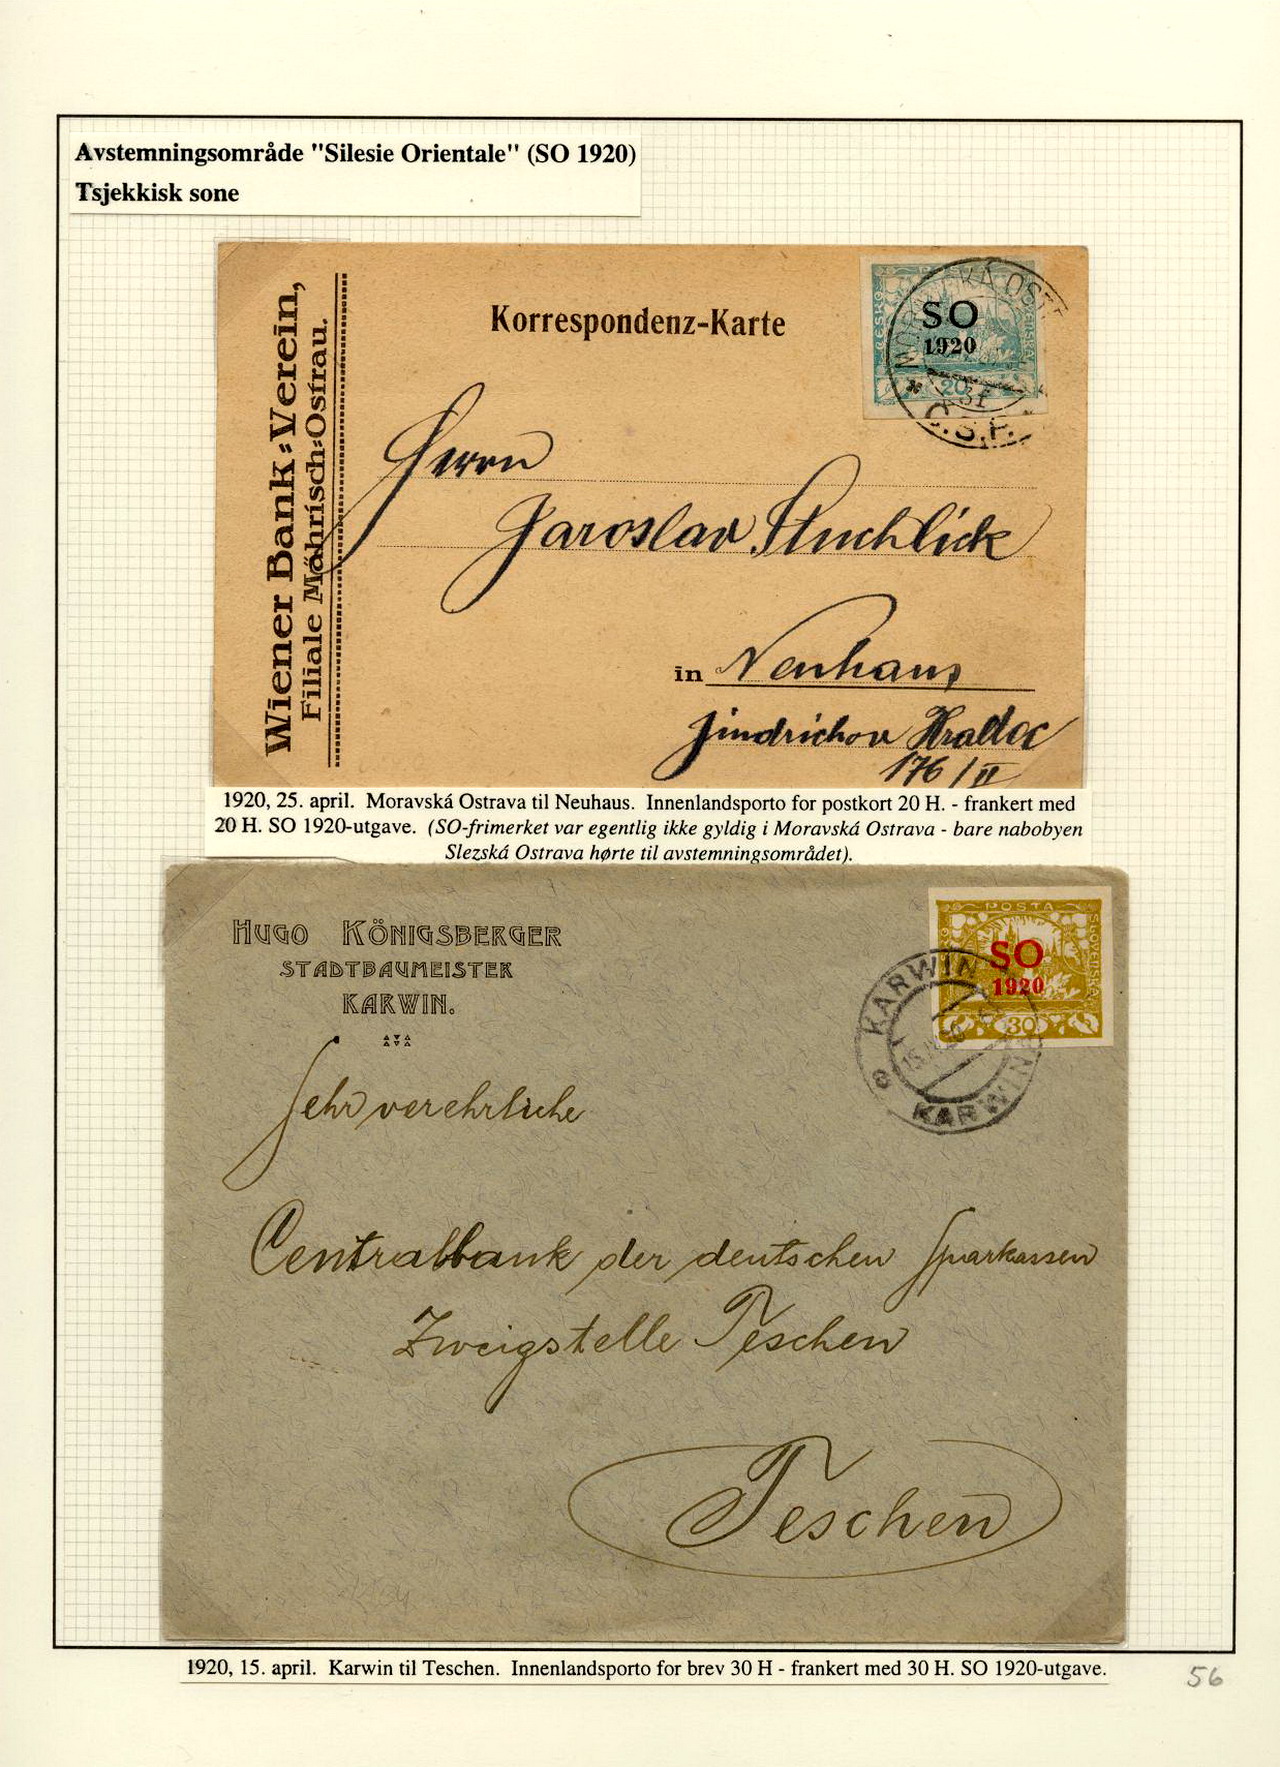 Avstemningsområde "Silesie Orientale" (SO 1920)
Tsjekkisk sone
Wiener Bank=Verein,
Filiale Mährisch=Ostrau.
Korrespondenz-Karte
SO
1920
20
MORAVSKÁ OST
Č.S.P.
Herrn
Jaroslav Stuchlick
in Neuhaus
Jindrichov Hradec
176/II
1920, 25. april. Moravská Ostrava til Neuhaus. Innenlandsporto for postkort 20 H. - frankert med
20 H. SO 1920-utgave. (SO-frimerket var egentlig ikke gyldig i Moravská Ostrava - bare nabobyen
Slezská Ostrava hørte til avstemningsområdet).
HUGO KÖNIGSBERGER
STADTBAUMEISTER
KARWIN.
POSTA
SLOVENSKÁ
SO
1920
30
KARWIN
KARWIN
Sehr verehrliche
Centralbank der deutschen Sparkassen
Zweigstelle Teschen
Teschen
1920, 15. april. Karwin til Teschen. Innenlandsporto for brev 30 H - frankert med 30 H. SO 1920-utgave.
56